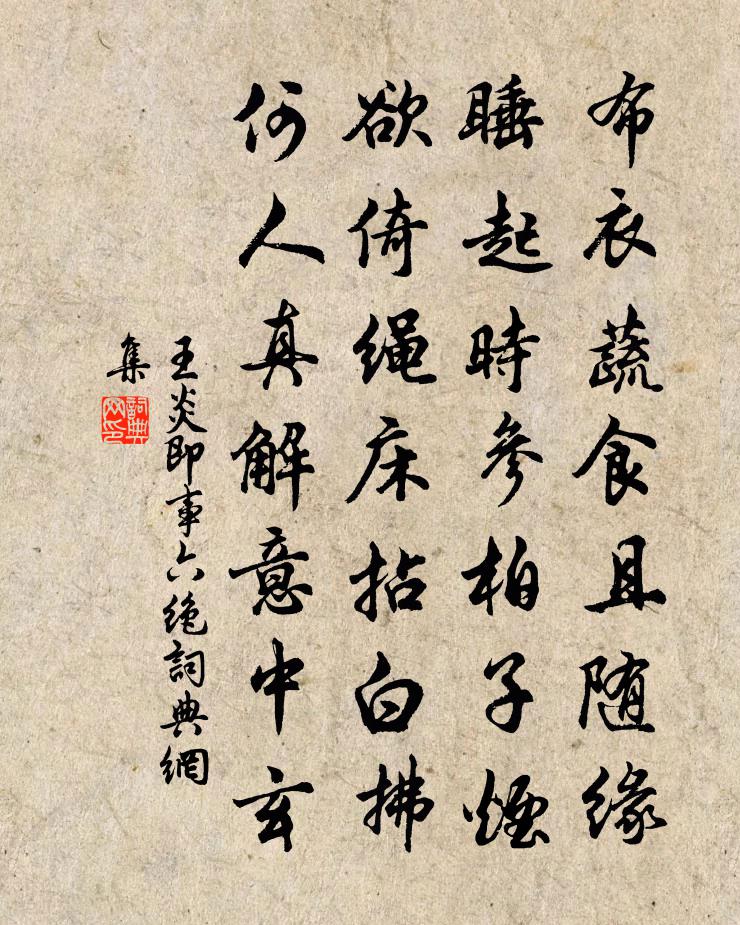 布衣蔬食且随緣
睡起時參柏子煙
欲倚绳床拈白拂
何人真解意中玄
王炎即事六絶詞典網
集
詞典
网印